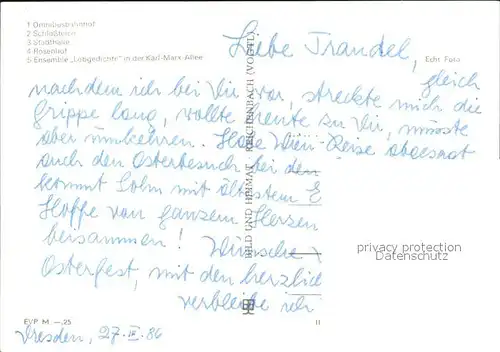 1 Omnibusbahnhof
2 Schloßteich
3 Stadthalle
4 Rosenhof
5 Ensemble „Lobgedichte" in der Karl-Marx-Allee
Echt Foto
BILD UND HEIMAT REICHENBACH (VOGTL)
Liebe Trandel,
gleich
nachdem ich bei Dir war, streckte mich die
Grippe lang, wollte heute zu Dir, musste
aber umkehren. Habe Wien-Reise abgesagt
auch den Osterbesuch bei den
kommt Sohn mit ältestem E
Hoffe von ganzem Herzen
beisammen! Wünsche
Osterfest, mit den herzlich
verbleibe ich
privacy protection
Datenschutz
EVP M –,25
II
Dresden, 27.III.86